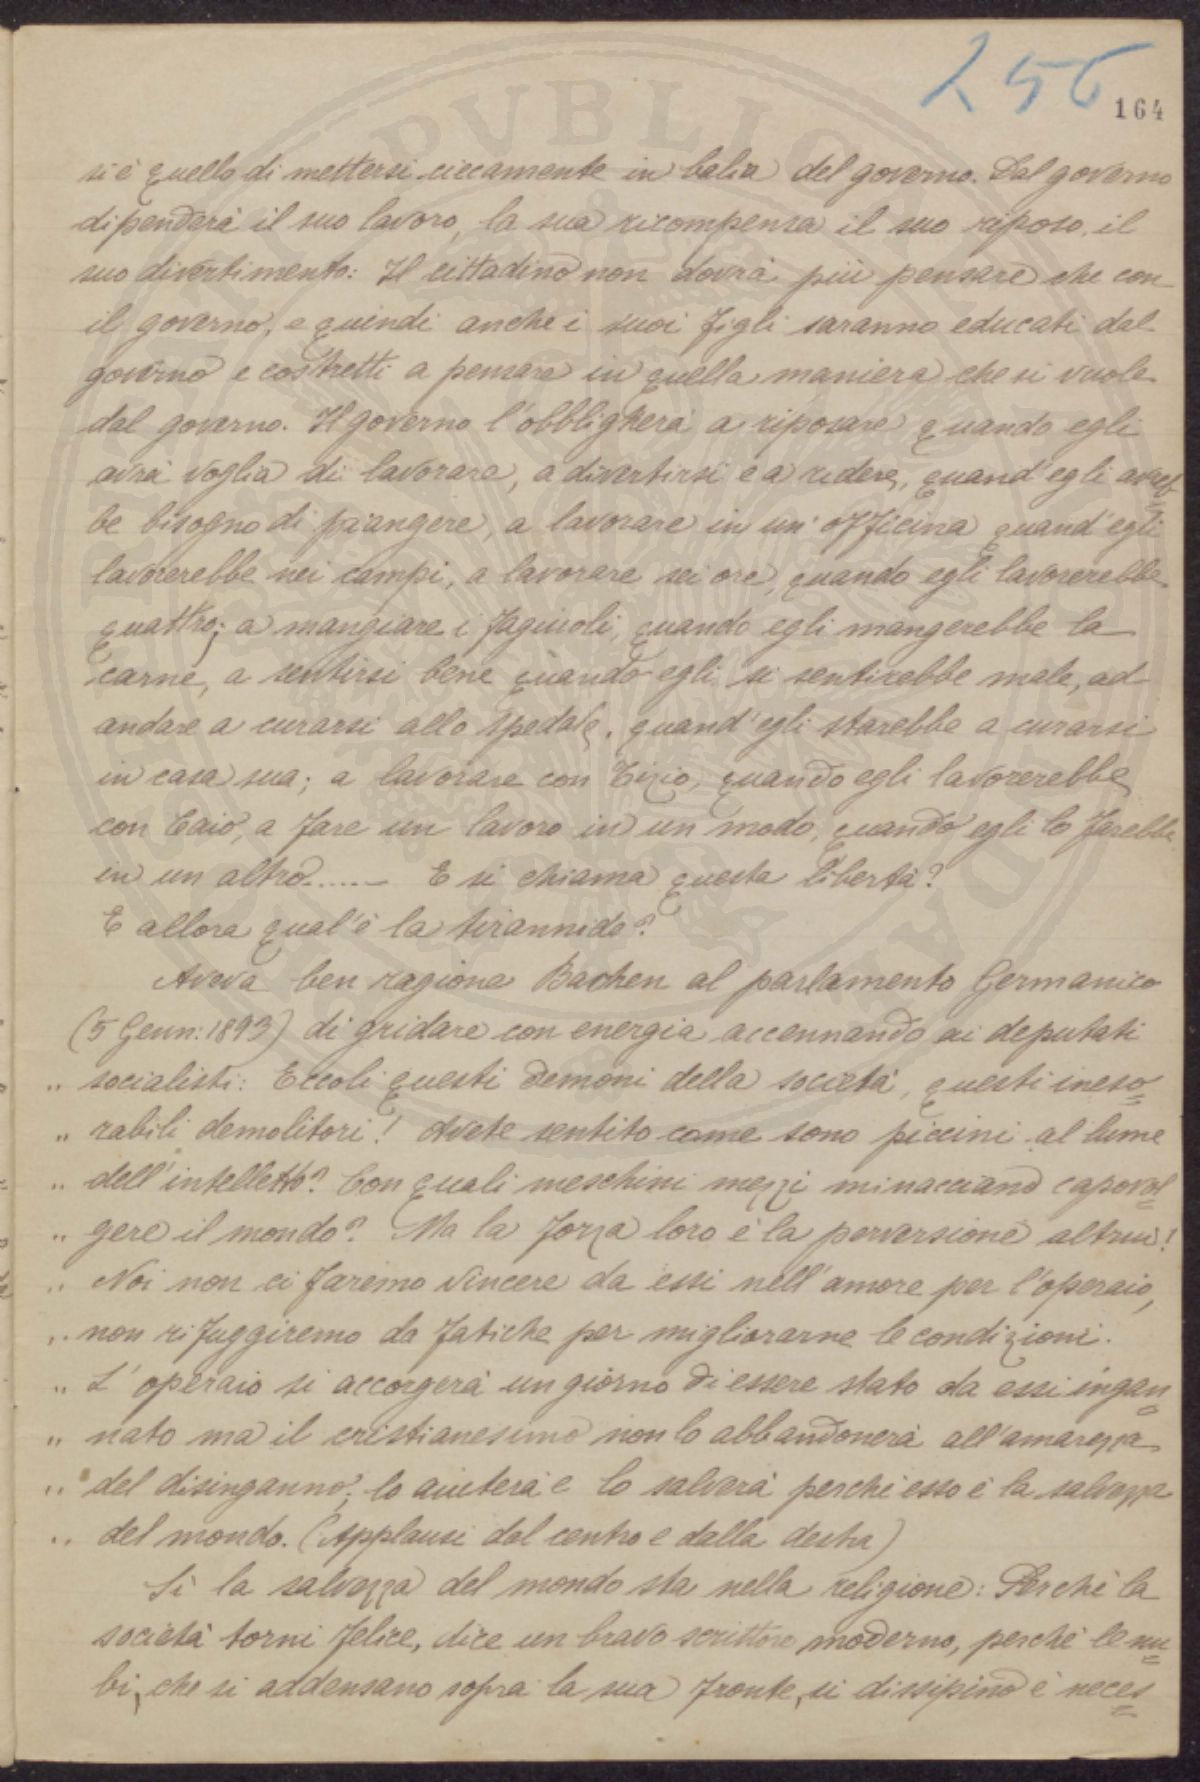 256
164
si è quello di mettersi ciecamente in balia del governo. Dal governo
dipenderà il suo lavoro, la sua ricompensa il suo riposo, il
suo divertimento: Il cittadino non dovrà più pensare che con
il governo, e quindi anche i suoi figli saranno educati dal
governo e costretti a pensare in quella maniera che si vuole
dal governo. Il governo l'obbligherà a riposare quando egli
avrà voglia di lavorare, a divertirsi e a ridere, quand'egli avreb=
be bisogno di piangere, a lavorare in un'officina quand'egli
lavorerebbe nei campi, a lavorare sei ore, quando egli lavorerebbe
quattro; a mangiare i fagiuoli, quando egli mangerebbe la
carne, a sentirsi bene quando egli si sentirebbe male, ad
andare a curarsi allo spedale, quand'egli starebbe a curarsi
in casa sua; a lavorare con Tizio, quando egli lavorerebbe
con Caio, a fare un lavoro in un modo, quando egli lo farebbe
in un altro...... E si chiama questa libertà?
E allora qual'è la tirannide?
Aveva ben ragione Bachen al parlamento Germanico
(5 Genn: 1893) di gridare con energia accennando ai deputati
„ socialisti: Eccoli questi demoni della società, questi ineso=
„ rabili demolitori! Avete sentito come sono piccini al lume
„ dell'intelletto? Con quali meschini mezzi minacciano capovol=
„ gere il mondo? Ma la forza loro è la perversione altrui!
„ Noi non ci faremo vincere da essi nell'amore per l'operaio,
„ non rifuggiremo da fatiche per migliorarne le condizioni.
„ L'operaio si accorgerà un giorno di essere stato da essi ingan=
„ nato ma il cristianesimo non lo abbandonerà all'amarezza
„ del disinganno; lo aiuterà e lo salverà perchè esso è la salvezza
„ del mondo. (Applausi dal centro e dalla destra)
Sì la salvezza del mondo sta nella religione: Perchè la
società torni felice, dice un bravo scrittore moderno, perchè le nu=
bi, che si addensano sopra la sua fronte, si dissipino è neces=